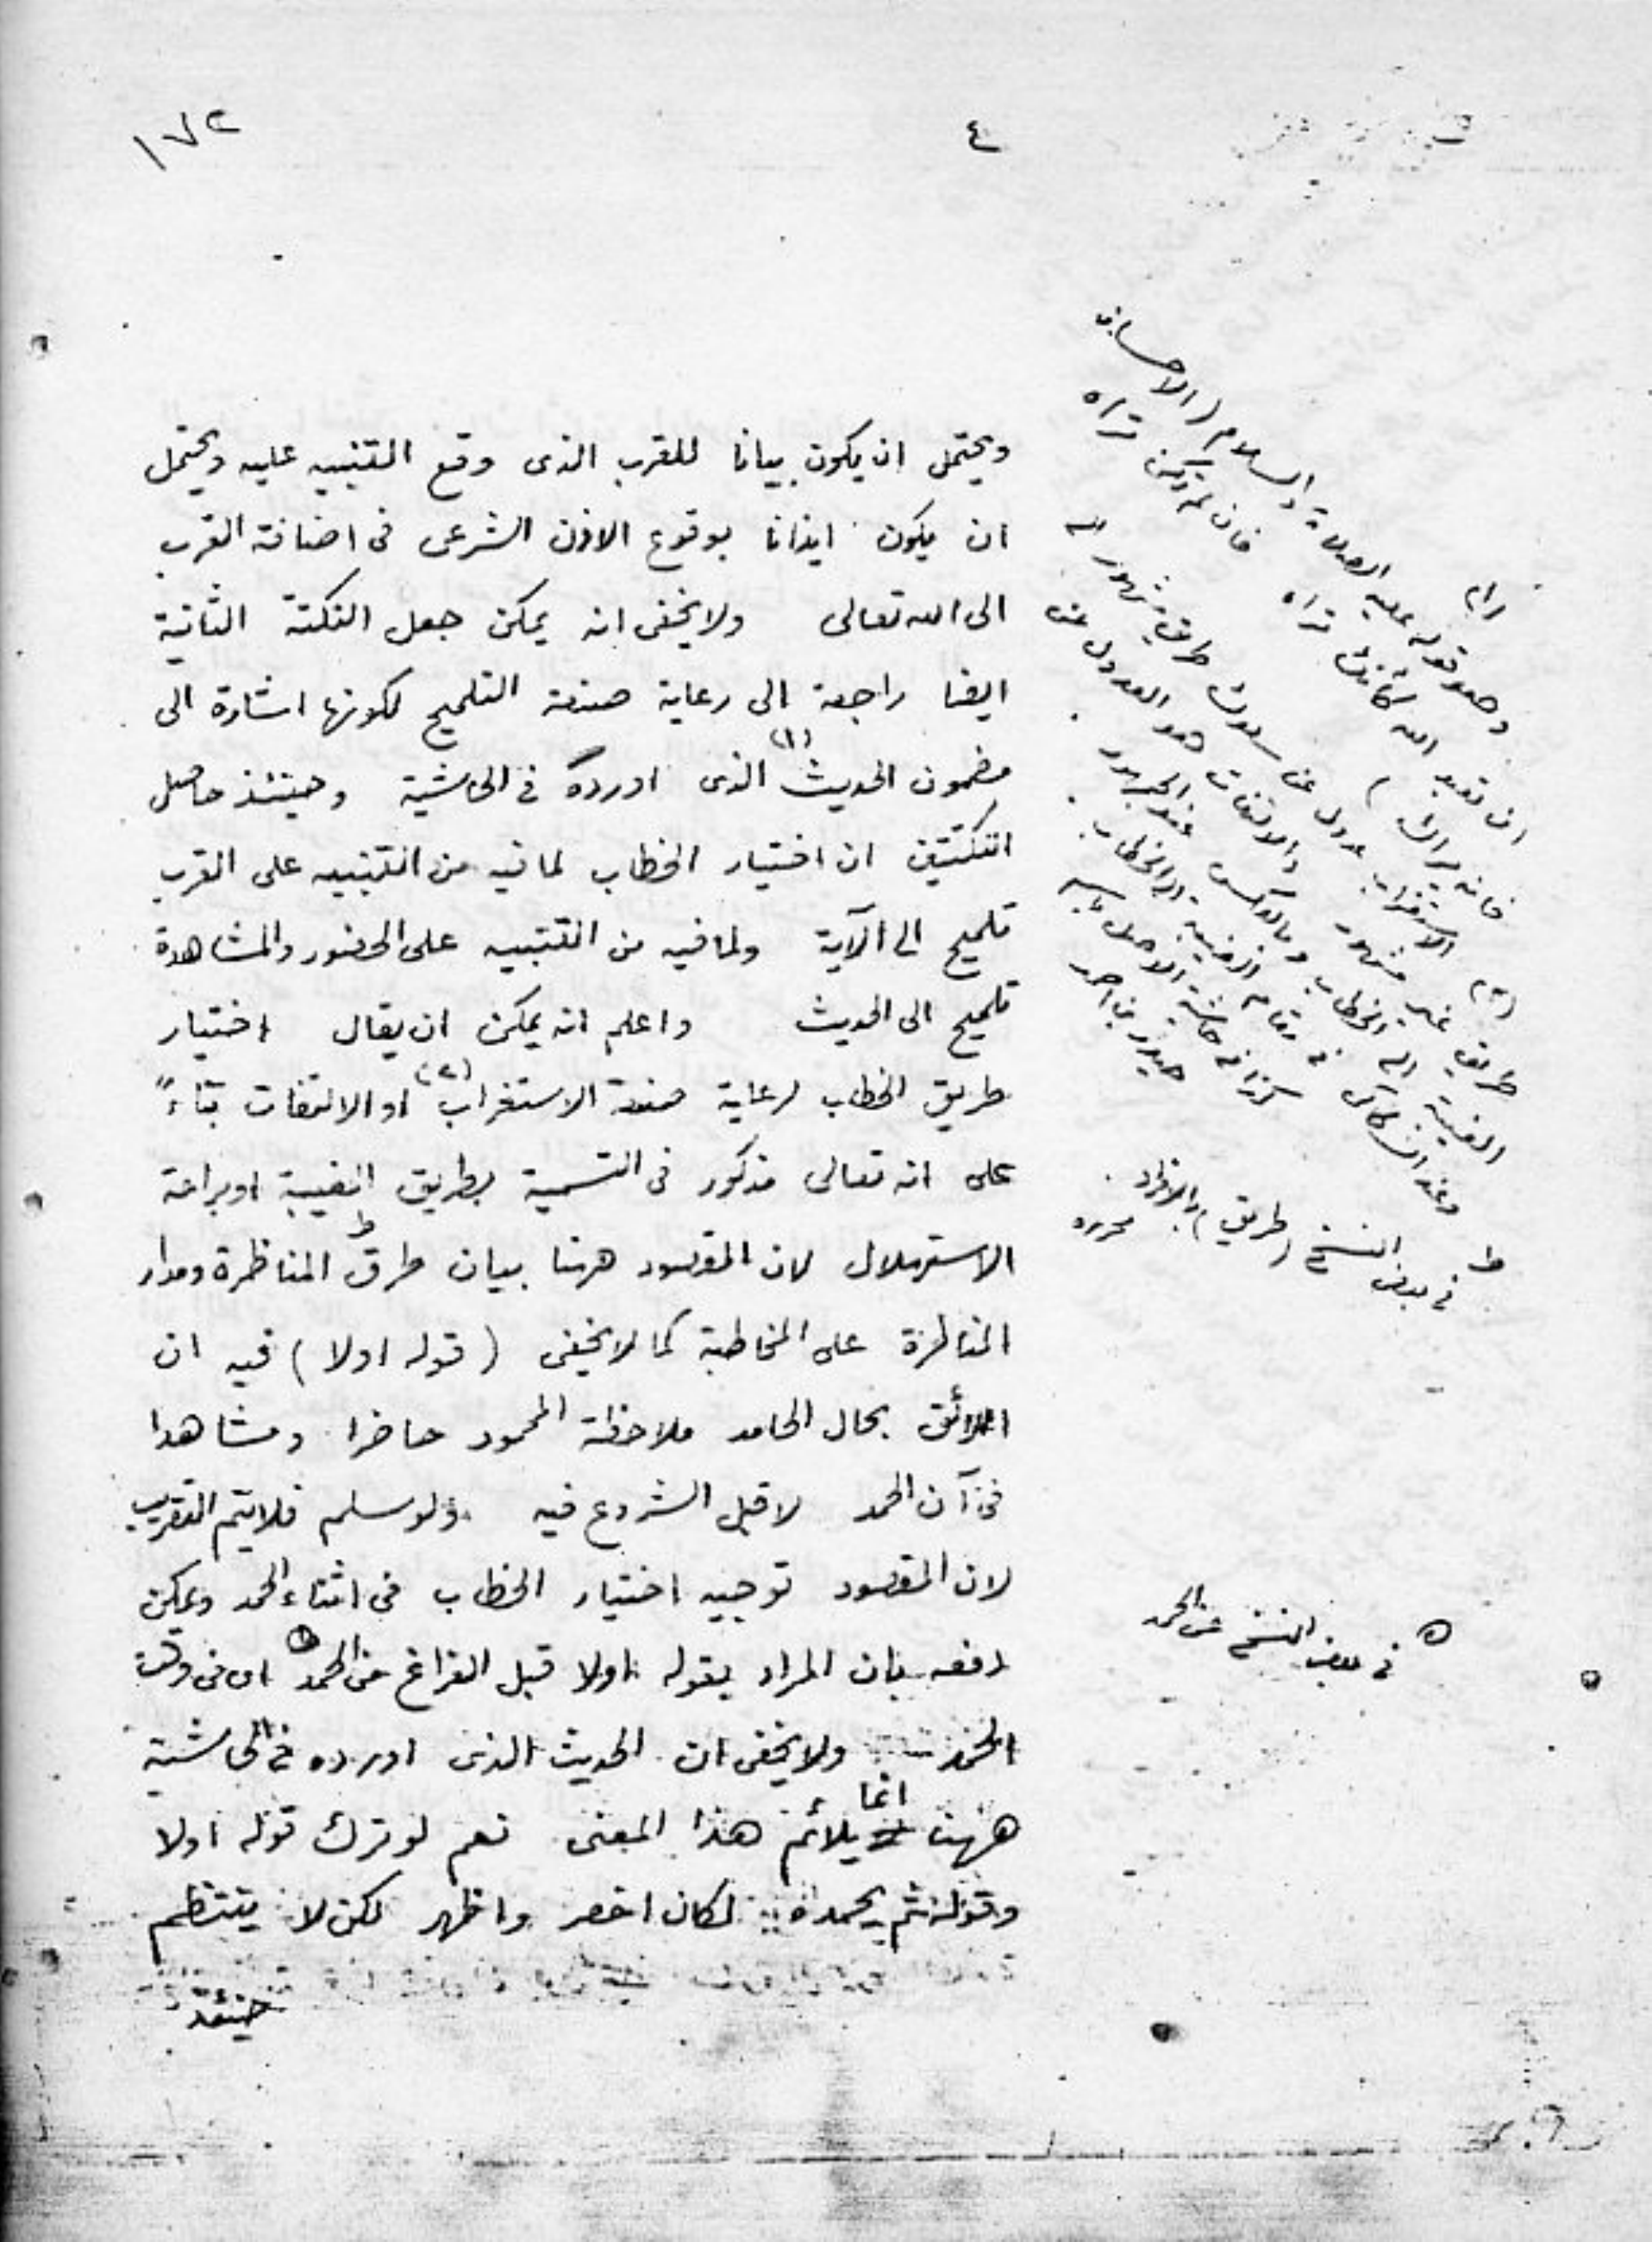 ١٧٢
٤
ويحتمل ان يكون بيانا للقرب الذى وقع التنبيه عليه ويحتمل
ان يكون ايذانا بوقوع الاذن الشرعى فى اضافة القرب
الى الله تعالى ولا يخفى انه يمكن جعل النكتة الثانية
ايضا راجعة الى رعاية صنعة التلميح لكونها اشارة الى
مضمون الحديث (١) الذى اورده فى الحاشية وحينئذ حاصل
النكتتين ان اختيار الخطاب لما فيه من التنبيه على القرب
تلميح الى الآية ولما فيه من التنبيه على الحضور والمشاهدة
تلميح الى الحديث واعلم انه يمكن ان يقال اختيار
طريق الخطاب لرعاية صنعة الاستغراب (٢) او الالتفات بناءً
على انه تعالى مذكور فى التسمية بطريق الغيبة او براعة
الاستهلال لان المقصود ههنا بيان طرق ط المناظرة ومدار
المناظرة على المخاطبة كما لا يخفى (قوله اولا) فيه ان
اللائق بحال الحامد ملاحظة المحمود حاضرا ومشاهدا
فى آن الحمد لا قبل الشروع فيه ولو سلم فلا يتم التقريب
لان المقصود توجيه اختيار الخطاب فى اثناء الحمد ويمكن
دفعه بان المراد بقوله اولا قبل الفراغ عن الحمد ه اى فى وقت
الحمد ولا يخفى ان الحديث الذى اورده فى الحاشية
ههنا انما يلائم هذا المعنى نعم لو ترك قوله اولا
وقوله ثم يحمده لكان اخصر واظهر لكن لا ينتظم
حينئذ
(١)
وهو قوله عليه الصلاة والسلام (الاحسان
ان تعبد الله كأنك تراه فان لم تكن تراه
فانه يراك)
(٢) الاستغراب عدول عن سلوك طريق مشهور الى
طريق غير مشهور والالتفات هو العدول عن
الغيبة الى الخطاب وبالعكس عند الجمهور
وعند السكاكى فى مقام الغيبة الى الخطاب
كذا فى حاشية الاصل
حيدر بن احمد
ط فى بعض النسخ (طريق) بالافراد محرره
ه فى بعض النسخ عن الحمد